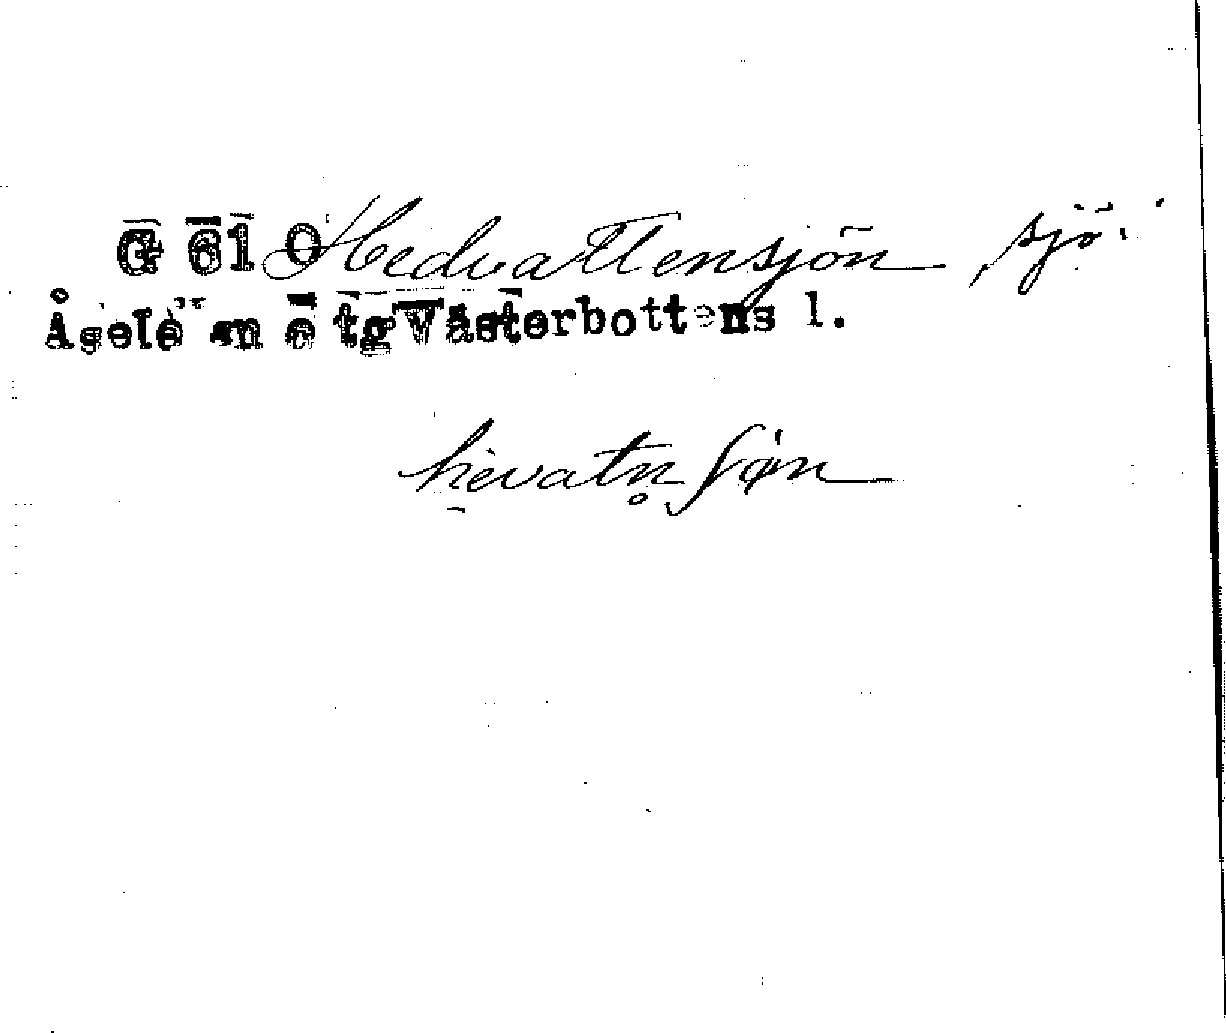 G 61 O Hedvattensjön, sjö.
Åsele Västerbottens l.
hevatn̥ ʃøn